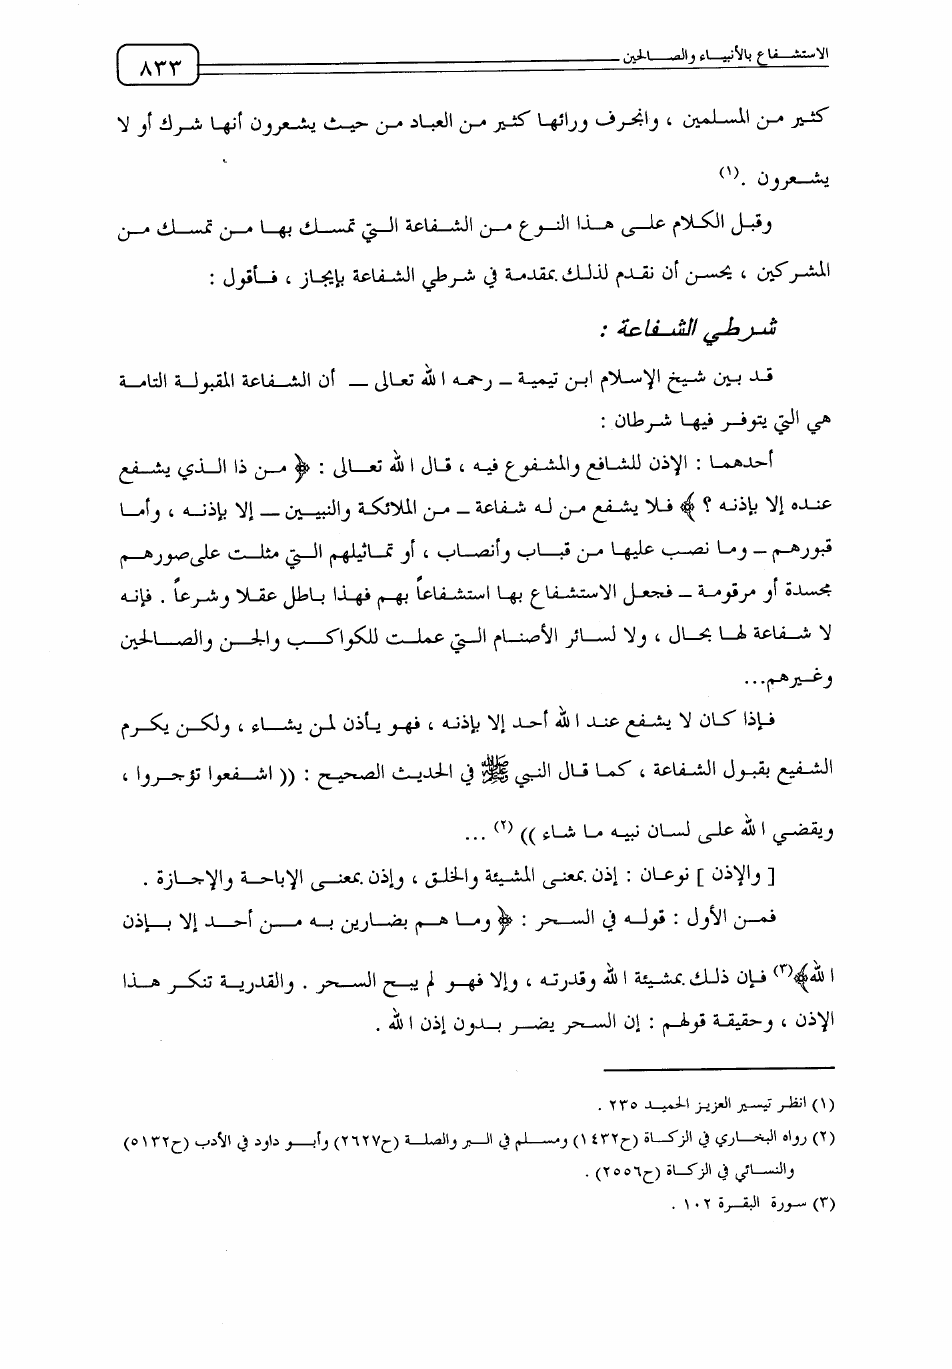 الاستشفاع بالأنبياء والصالحين
٨٣٣
كثير من المسلمين ، وانجرف ورائها كثير من العباد من حيث يشعرون أنها شرك أو لا
يشعرون .(١)
وقبل الكلام على هذا النوع من الشفاعة التي تمسك بها من تمسك من
المشركين ، يحسن أن نقدم لذلك بمقدمة في شرطي الشفاعة بإيجاز ، فأقول :
شرطي الشفاعة :
قد بين شيخ الإسلام ابن تيمية – رحمه الله تعالى – أن الشفاعة المقبولة التامة
هي التي يتوفر فيها شرطان :
أحدهما : الإذن للشافع والمشفوع فيه ، قال الله تعالى : ﴿ من ذا الذي يشفع
عنده إلا بإذنه ؟ ﴾ فلا يشفع من له شفاعة – من الملائكة والنبيين – إلا بإذنه ، وأما
قبورهم – وما نصب عليها من قباب وأنصاب ، أو تماثيلهم التي مثلت على صورهم
مجسدة أو مرقومة – فجعل الاستشفاع بها استشفاعاً بهم فهذا باطل عقلا وشرعاً . فإنه
لا شفاعة لها بحال ، ولا لسائر الأصنام التي عملت للكواكب والجن والصالحين
وغيرهم...
فإذا كان لا يشفع عند الله أحد إلا بإذنه ، فهو يأذن لمن يشاء ، ولكن يكرم
الشفيع بقبول الشفاعة ، كما قال النبي ﷺ في الحديث الصحيح : (( اشفعوا تؤجروا ،
ويقضي الله على لسان نبيه ما شاء )) (٢) ...
[ والإذن ] نوعان : إذن بمعنى المشيئة والخلق ، وإذن بمعنى الإباحة والإجازة .
فمن الأول : قوله في السحر : ﴿ وما هم بضارين به من أحد إلا بإذن
الله﴾(٣) فإن ذلك بمشيئة الله وقدرته ، وإلا فهو لم يبح السحر . والقدرية تنكر هذا
الإذن ، وحقيقة قولهم : إن السحر يضر بدون إذن الله .
(١) انظر تيسير العزيز الحميد ٢٣٥ .
(٢) رواه البخاري في الزكاة (ح١٤٣٢) ومسلم في البر والصلة (ح٢٦٢٧) وأبو داود في الأدب (ح٥١٣٢)
والنسائي في الزكاة (ح٢٥٥٦) .
(٣) سورة البقرة ١٠٢ .